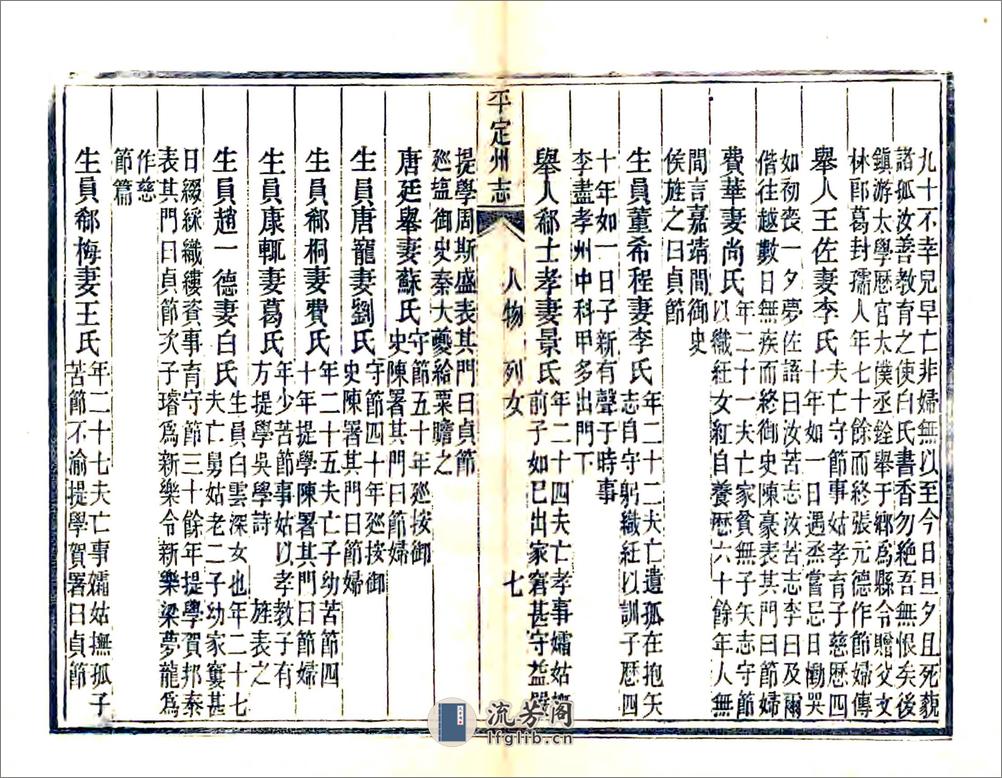 九十不幸兒早亡非婦無以至今日旦夕且死藐
諸孤汝善教育之使白氏書香勿絶吾無恨矣後
鎮游太學歷官太僕丞銓舉于鄉爲縣令贈父文
林郎葛封孺人年七十餘而終張元德作節婦傳
舉人王佐妻李氏夫亡守節事姑孝育子慈歷四
十年如一日遇烝嘗忌日慟哭
如初喪一夕夢佐語曰汝苦志汝苦志李曰及爾
偕往越數日無疾而終御史陳豪表其門曰節婦
費華妻尚氏年二十一夫亡家貧無子矢志守節
以織紝女紅自養歷六十餘年人無
間言嘉靖間御史
侯旌之曰貞節
生員董希程妻李氏年二十二夫亡遺孤在抱矢
志自守躬織紝以訓子歷四
十年如一日子新有聲于時事
李盡孝州中科甲多出出門下
舉人郗士孝妻景氏年二十四夫亡孝事孀姑撫
前子如已出家窘甚守益堅
平定州志
人物 列女
七
提學周斯盛表其門曰貞節
廵塩御史秦大夔給粟贍之
唐廷舉妻蘇氏守節五十年廵按御
史陳署其門曰節婦
生員唐寵妻劉氏守節四十年廵按御
史陳署其門曰節婦
生員郗桐妻費氏年二十五夫亡子幼苦節四
十年提學陳署其門曰節婦
生員康輒妻葛氏年少苦節事姑以孝教子有
方提學吳學詩旌表之
生員趙一德妻白氏生員白雲深女也年二十七
夫亡舅姑老二子幼家窶甚
日綴綵織縷資事育守節三十餘年提學賀邦泰
表其門曰貞節次子璿爲新樂令新樂梁夢龍爲
作慈
節篇
生員郗梅妻王氏年二十七夫亡事孀姑撫孤子
苦節不渝提學賀署曰貞節
流芳阁
lfglib.cn